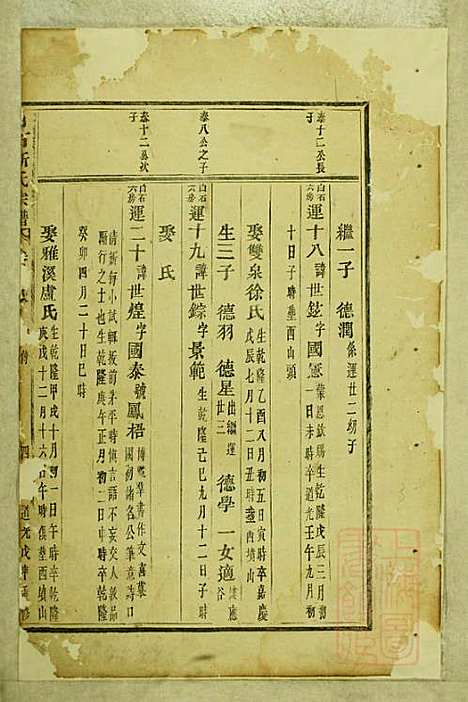 繼一子 德潤 係運廿二幼子
泰十二公長子
白石六房 運十八 諱世鉉 字國 蒙恩欽賜 生乾隆戊辰三月初一日未時卒道光壬午九月初十日子時塟西山頭
娶雙泉徐氏 生乾隆乙酉八月初五日寅時卒嘉慶戊辰七月十二日丑時塟西塢山
生三子 德羽 德星 出繼運廿三 德學 一女適
泰八公之子
白石六房 運十九 諱世錝 字景範 生乾隆己巳九月十二日子時
娶 氏
泰十二公次子
白石六房 運二十 諱世煌 字國泰 號鳳梧 博覽羣書作文喜摹國初諸名公筆意詩口清新每小試輒拔前茅平時慎言語不妄交人敦品勵行之士也生乾隆庚午正月初二日申時卒乾隆癸卯四月二十日巳時
娶雅溪盧氏 生乾隆甲戌十月初一日午時卒乾隆庚戌十二月十六日午時俱塟西塢山
氏宗譜
道光戊申重修